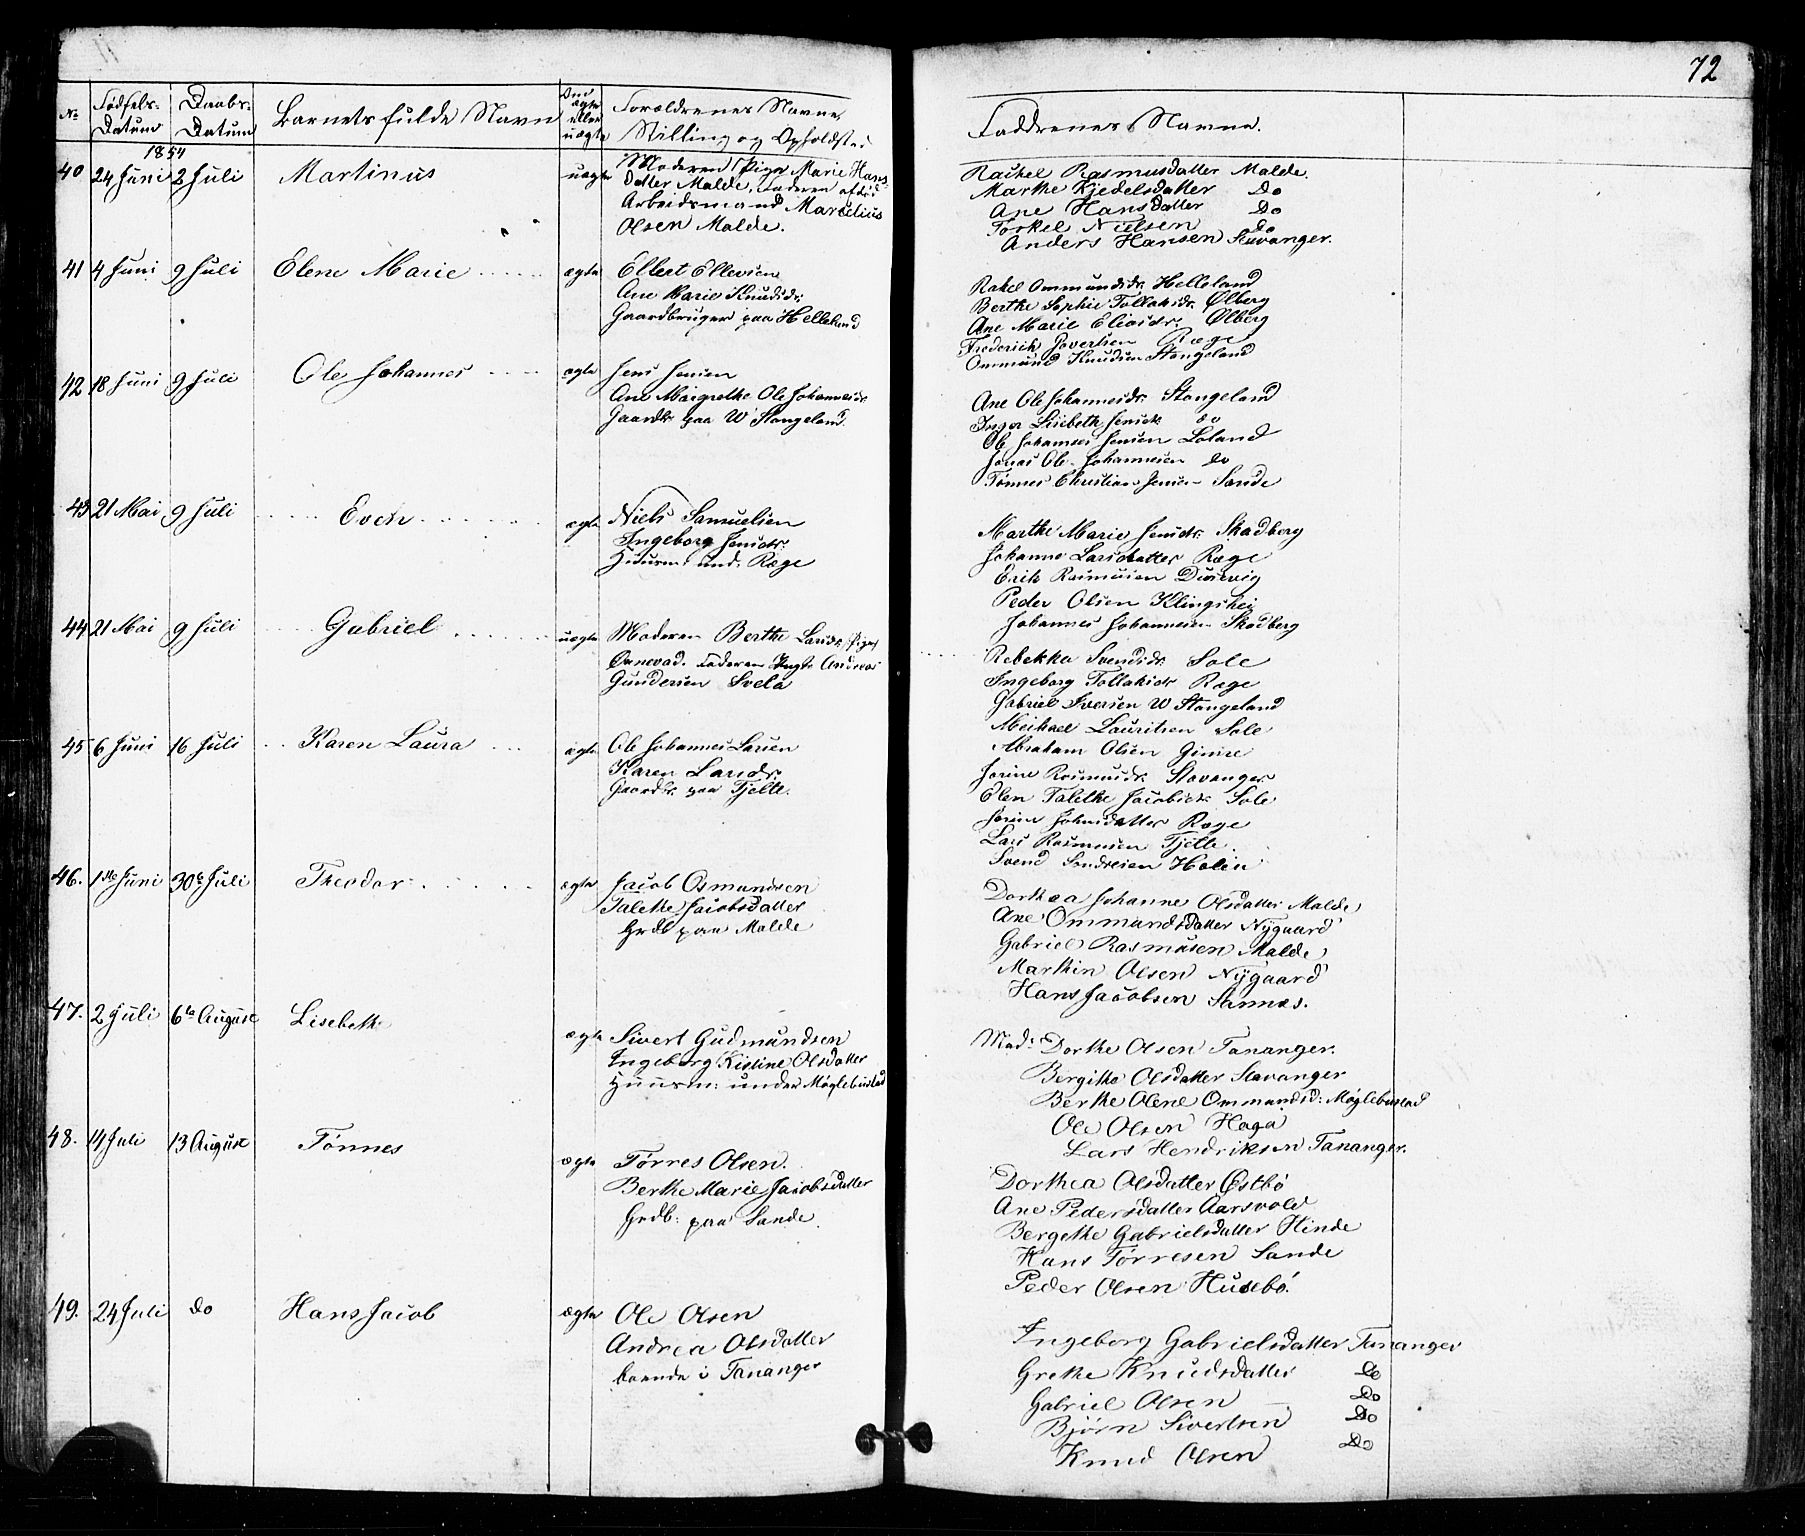 72
No Fødsels- Datum Daabs- Datum Barnets fulde Navn Om ægte eller uægte Forældrenes Navne, Stilling og Opholdsted
Faddrenes Navne.
1854
40 24 Juni 2 Juli Martinus uægte Moderen Pige Marie Hans-
Datter Malde, Faderen afdød
Arbeidsmand Marcelius
Olsen Malde.
Rachel Rasmusdatter Malde.
Marthe Kjedelsdatter Do
Ane Hansdatter Do
Torkel Nielsen Do
Anders Hansen Stavanger.
41 4 Juni 9 Juli Elene Marie ægte Elbert Ellevsen
Ane Marie Knudsdr.
Gaardbruger paa Helleland
Rakel Ommundsdr. Helleland
Berthe Sophie Tollaksdr. Ølberg
Ane Marie Eliasdr. Ølberg
Frederick Govertsen Ræge
Ommund Knudsen Stangeland
42 18 Juni 9 Juli Ole Johannes ægte Jens Jensen
Ane Margrethe Ole Johannesdr.
Gaardbr. paa W Stangeland.
Ane Ole Johannesdr. Stangeland
Inger Lisebeth Jensdr. do
Ole Johannes Jensen Loland
Jonas Ole Johannesen do
Tønnes Christian Jensen Sande
43 21 Mai 9 Juli Even ægte Niels Samuelsen
Ingeborg Jensdr.
Huusm. und. Ræge
Marthe Marie Jensdr. Skadberg
Johanne Larsdatter Ræge
Erik Rasmusen Dusevig
Peder Olsen Klingshei
Johannes Johannesen Skadberg
44 21 Mai 9 Juli Gabriel uægte Moderen Berthe Larsdr. Pige
Ørnevad. Faderen Andreas
Gundersen Svela
Rebekka Svendsdr. Sole
Ingeborg Tollaksdr. Ræge
Gabriel Iversen W Stangeland
Michael Lauritsen Sole
Abraham Olsen Gimre
45 6 Juni 16 Juli Karen Laura ægte Ole Johannes Larsen
Karen Larsdr.
Gaardbr. paa Tjelte.
Jorine Rasmusdr. Stavanger
Elen Talethe Jacobsdr. Sole
Johnsdatter Ræge
Lars Rasmusen Tjelte
Svend Sondresen
46. 1ste Juni 30te Juli Theodor ægte Jacob Osmundsen
Talethe Jacobsdatter
Grdb paa Malde
Dorthea Johanne Olsdatter Malde
Ane Ommundsdatter Nygaard
Gabriel Rasmusen Malde
Marthin Olsen Nygaard
Hans Jacobsen Sannæs.
47. 2 Juli 6te August Lisebeth ægte Sivert Gudmundsen
Ingeborg Kistine Olsdatter
Huusm: under Møglebustad
Mad: Dorthe Olsen Tananger.
Bergithe Olsdatter Stavanger
Berthe Olene Ommundsd: Møglebustad
Ole Olsen Haga
Lars Hendriksen Tananger.
48. 14 Juli 13 August Tønnes ægte Torres Olsen.
Berthe Marie Jacobsdatter
Grdb: paa Sande.
Dorthea Olsdatter Østbø
Ane Pedersdatter Aarsvold
Bergethe Gabrielsdatter Hinde
Hans Tørresen Sande
Peder Olsen Husebø.
49. 24 Juli Do Hans Jacob ægte Ole Olsen
Andrea Olsdatter
boende i Tananger
Ingeborg Gabrielsdatter Tananger
Grethe Knudsdatter Do
Gabriel Olsen Do
Bjørn Sivertsen Do
Knud Olsen Do